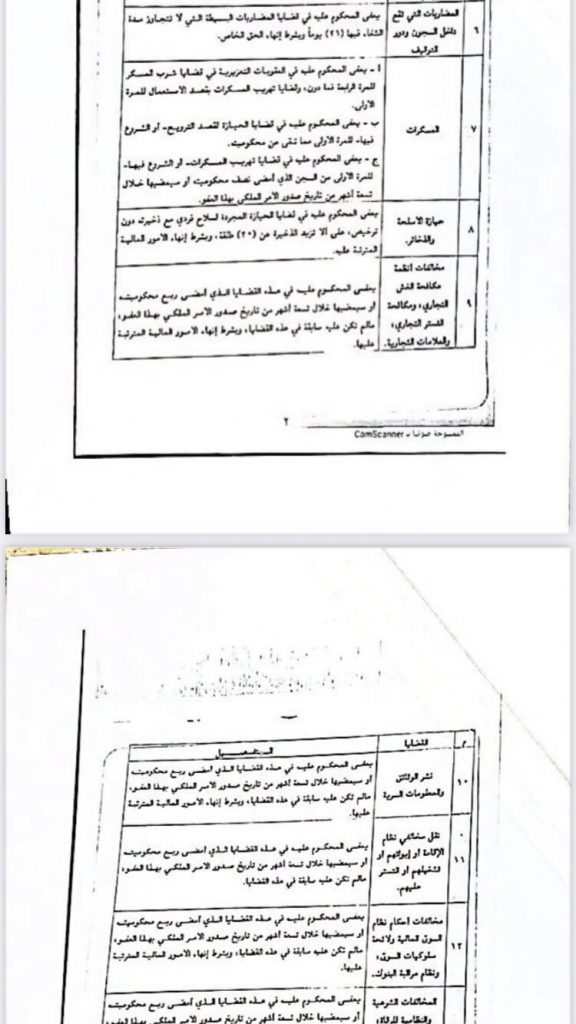 المضاربات التي تقع
داخل السجون ودور
التوقيف
٦
يعفى المحكوم عليه في قضايا المضاربات البسيطة التي لا تتجاوز مدة
الشفاء فيها (٢١) يوماً وبشرط إنهاء الحق الخاص.
٧
المسكرات
أ - يعفى المحكوم عليه في العقوبات التعزيرية في قضايا شرب المسكر
للمرة الرابعة فما دون، وقضايا تهريب المسكرات بقصد الاستعمال للمرة
الأولى.
ب - يعفى المحكوم عليه في قضايا الحيازة لقصد الترويج- أو الشروع
فيها- للمرة الأولى مما تبقى من محكوميته.
ج - يعفى المحكوم عليه في قضايا تهريب المسكرات- أو الشروع فيها-
للمرة الأولى من السجن الذي أمضى نصف محكوميته أو سيمضيها خلال
تسعة أشهر من تاريخ صدور الأمر الملكي بهذا العفو.
٨
حيازة الأسلحة
والذخائر.
يعفى المحكوم عليه في قضايا الحيازة المجردة لسلاح فردي مع ذخيرته دون
ترخيص، على ألا تزيد الذخيرة عن (٢٠) طلقة، وبشرط إنهاء الأمور المالية
المترتبة عليه.
٩
مخالفات أنظمة
مكافحة الغش
التجاري، ومكافحة
التستر التجاري،
والعلامات التجارية.
يعفى المحكوم عليه في هذه القضايا الذي أمضى ربع محكوميته
أو سيمضيها خلال تسعة أشهر من تاريخ صدور الأمر الملكي بهذا العفو،
مالم تكن عليه سابقة في هذه القضايا، وبشرط إنهاء الأمور المالية المترتبة
عليها.
٢
الممسوحة ضوئيا بـ CamScanner
م القضايا التفصيل
١٠
نشر الوثائق
والمعلومات السرية
يعفى المحكوم عليه في هذه القضايا الذي أمضى ربع محكوميته
أو سيمضيها خلال تسعة أشهر من تاريخ صدور الأمر الملكي بهذا العفو،
مالم تكن عليه سابقة في هذه القضايا، وبشرط إنهاء الأمور المالية المترتبة
عليها.
١١
نقل مخالفي نظام
الإقامة أو إيوائهم أو
تشغيلهم أو التستر
عليهم.
يعفى المحكوم عليه في هذه القضايا الذي أمضى ربع محكوميته
أو سيمضيها خلال تسعة أشهر من تاريخ صدور الأمر الملكي بهذا العفو،
مالم تكن عليه سابقة في هذه القضايا.
١٢
مخالفات أحكام نظام
السوق المالية ولائحة
سلوكيات السوق،
ونظام مراقبة البنوك.
يعفى المحكوم عليه في هذه القضايا الذي أمضى ربع محكوميته
أو سيمضيها خلال تسعة أشهر من تاريخ صدور الأمر الملكي بهذا العفو،
مالم تكن عليه سابقة في هذه القضايا، وبشرط إنهاء الأمور المالية المترتبة
عليها.
المخالفات الشرعية
والنظامية للرقاة
يعفى المحكوم عليه في هذه القضايا الذي أمضى ربع محكوميته
أو سيمضيها خلال تسعة أشهر من تاريخ صدور الأمر الملكي بهذا العفو،